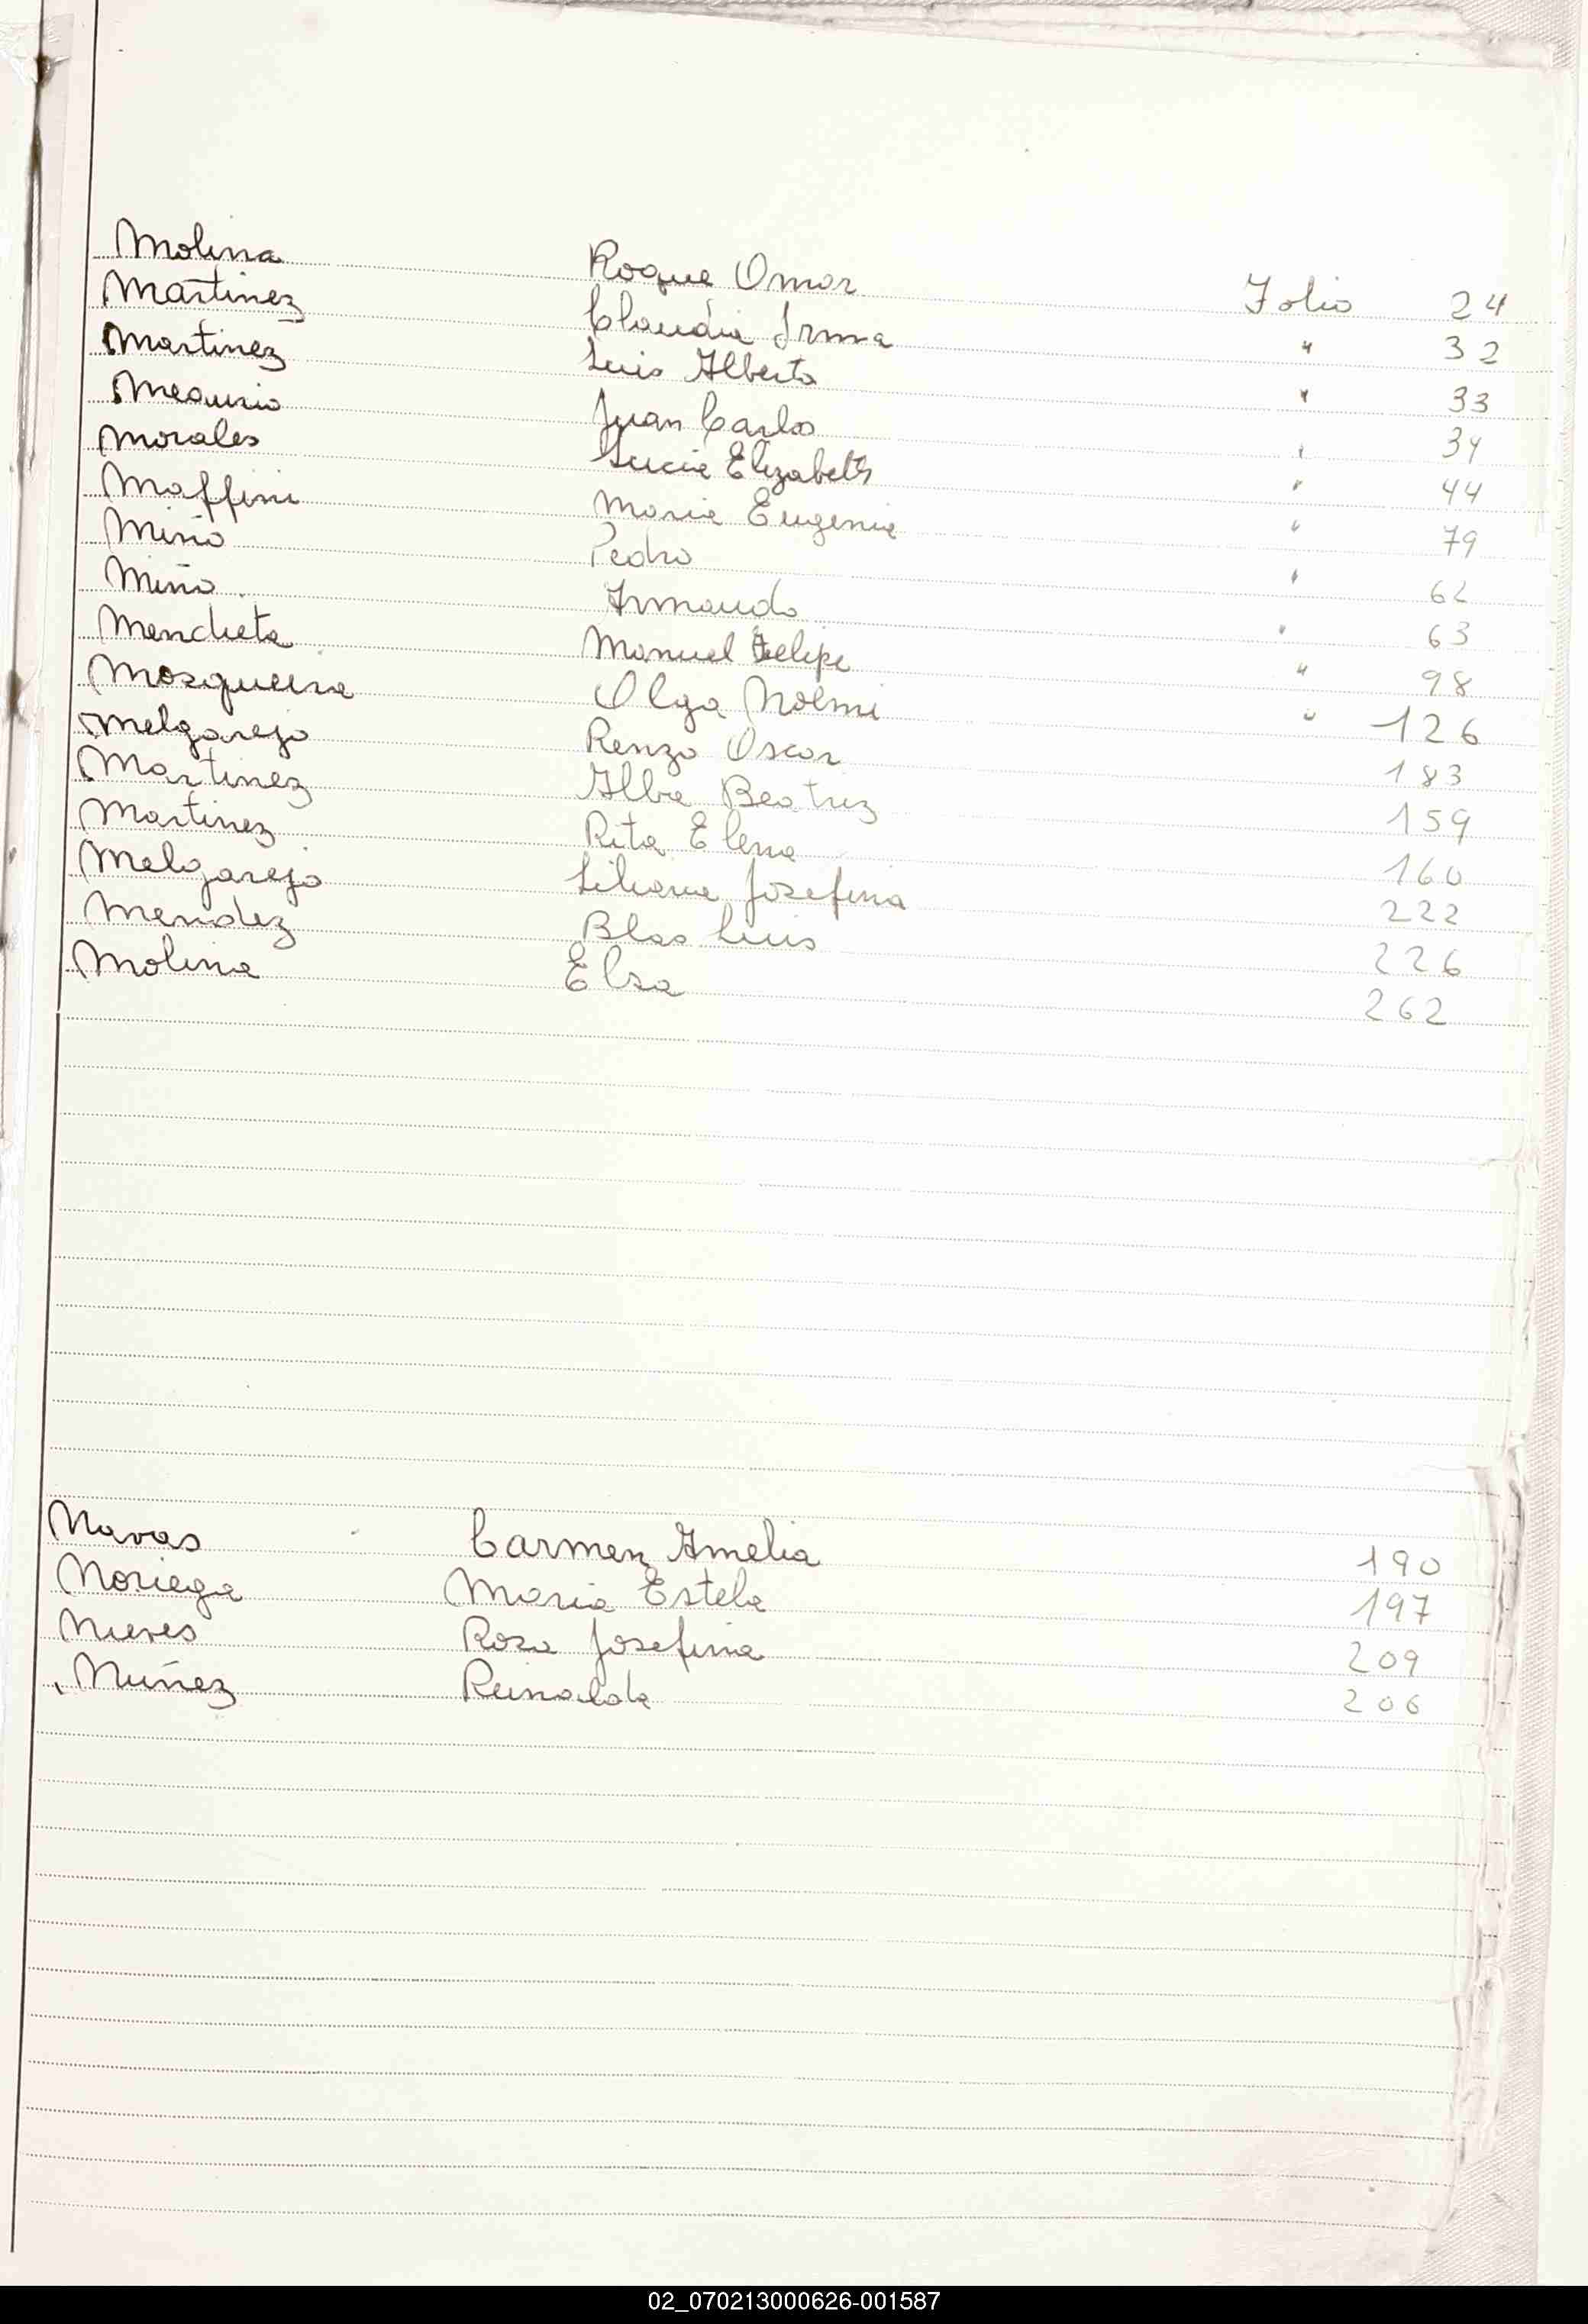 Molina Roque Omar Folio 24
Martinez Claudia Irma " 32
Martinez Luis Alberto " 33
Juan Carlos " 34
Morales Lucia Elizabeth " 44
Maffini Maria Eugenia " 79
Miño Pedro " 62
Miño Armando " 63
Mencheta Manuel Felipe " 98
Mosqueira Olga Noemi " 126
Melgarejo Renzo Oscar 183
Martinez Alba Beatriz 159
Martinez Rita Elena 160
Melgarejo Liliana Josefina 222
Mendez Blas Luis 226
Molina Elsa 262
Navas Carmen Amelia 190
Noriega Maria Estela 197
Nieves Rosa Josefina 209
Nuñez 206
02_070213000626-001587